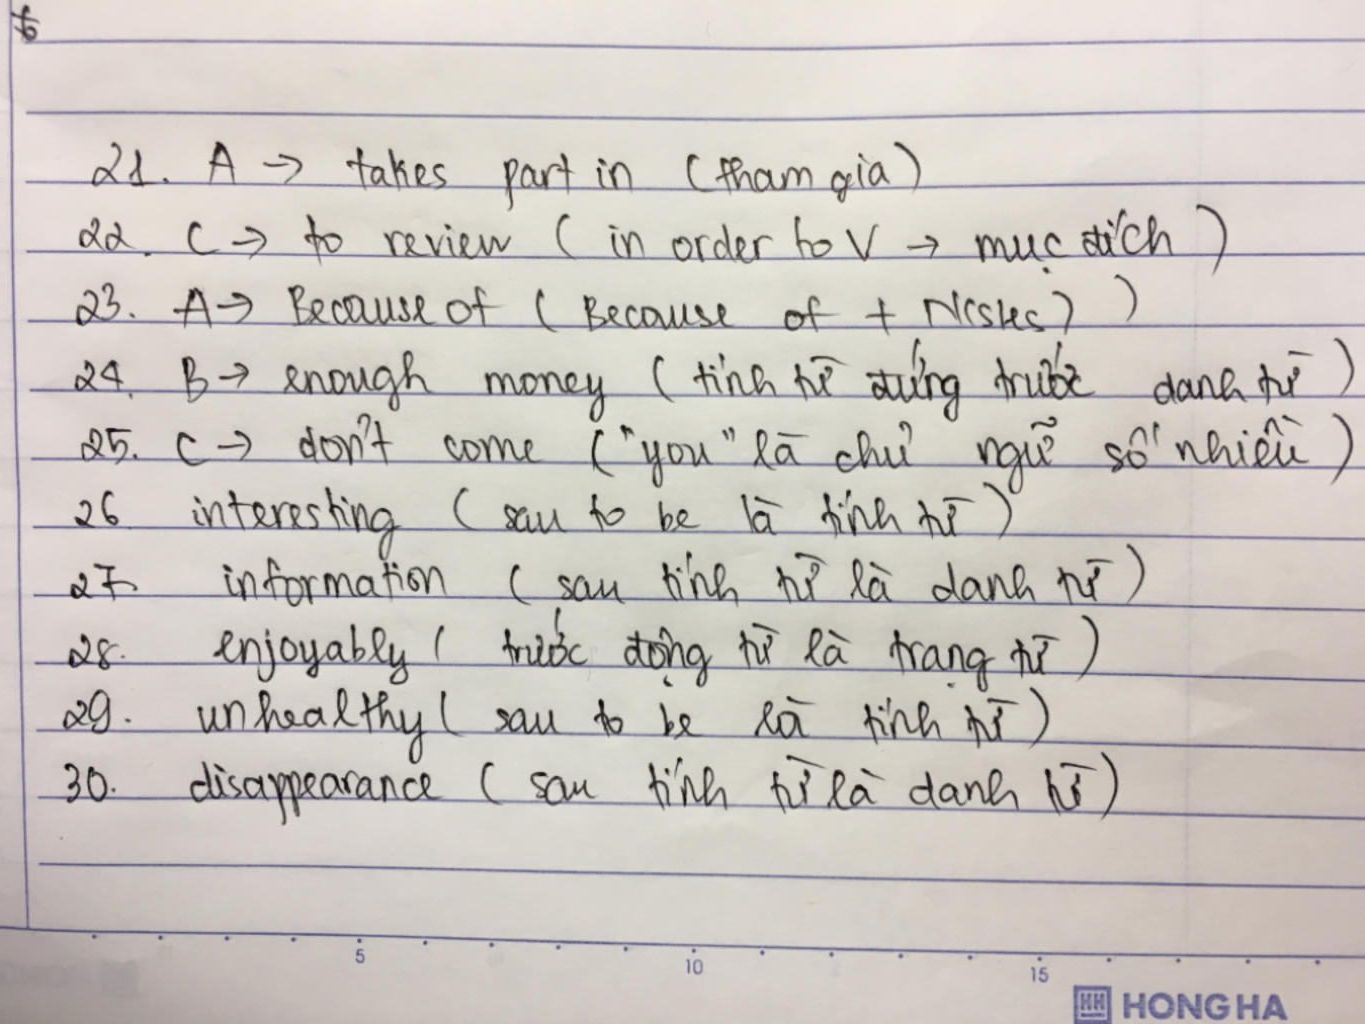 21. A → takes part in (tham gia)
22. C → to review (in order to V → mục đích)
23. A → Because of (Because of + N(s/es))
24. B → enough money (tính từ đứng trước danh từ)
25. C → don't come ("you" là chủ ngữ số nhiều)
26 interesting (sau to be là tính từ)
27. information (sau tính từ là danh từ)
28. enjoyably (trước động từ là trạng từ)
29. unhealthy (sau to be là tính từ)
30. disappearance (sau tính từ là danh từ)
5 10 15
HH HONG HA